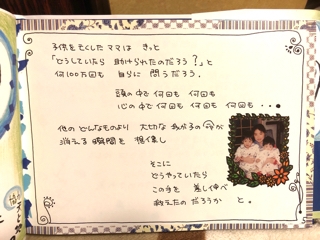 子供を亡くしたママは きっと
「どうしていたら 助けられたのだろう？」と
何100万回も 自らに 問うだろう。
頭の中で 何回も 何回も
心の中で 何回も 何回も 何回も・・・
他の どんなものより 大切な 我が子の 命が
消える 瞬間を 想像し
そこに
どうやっていたら
この手を 差し伸べ
救えたのだろうか と。